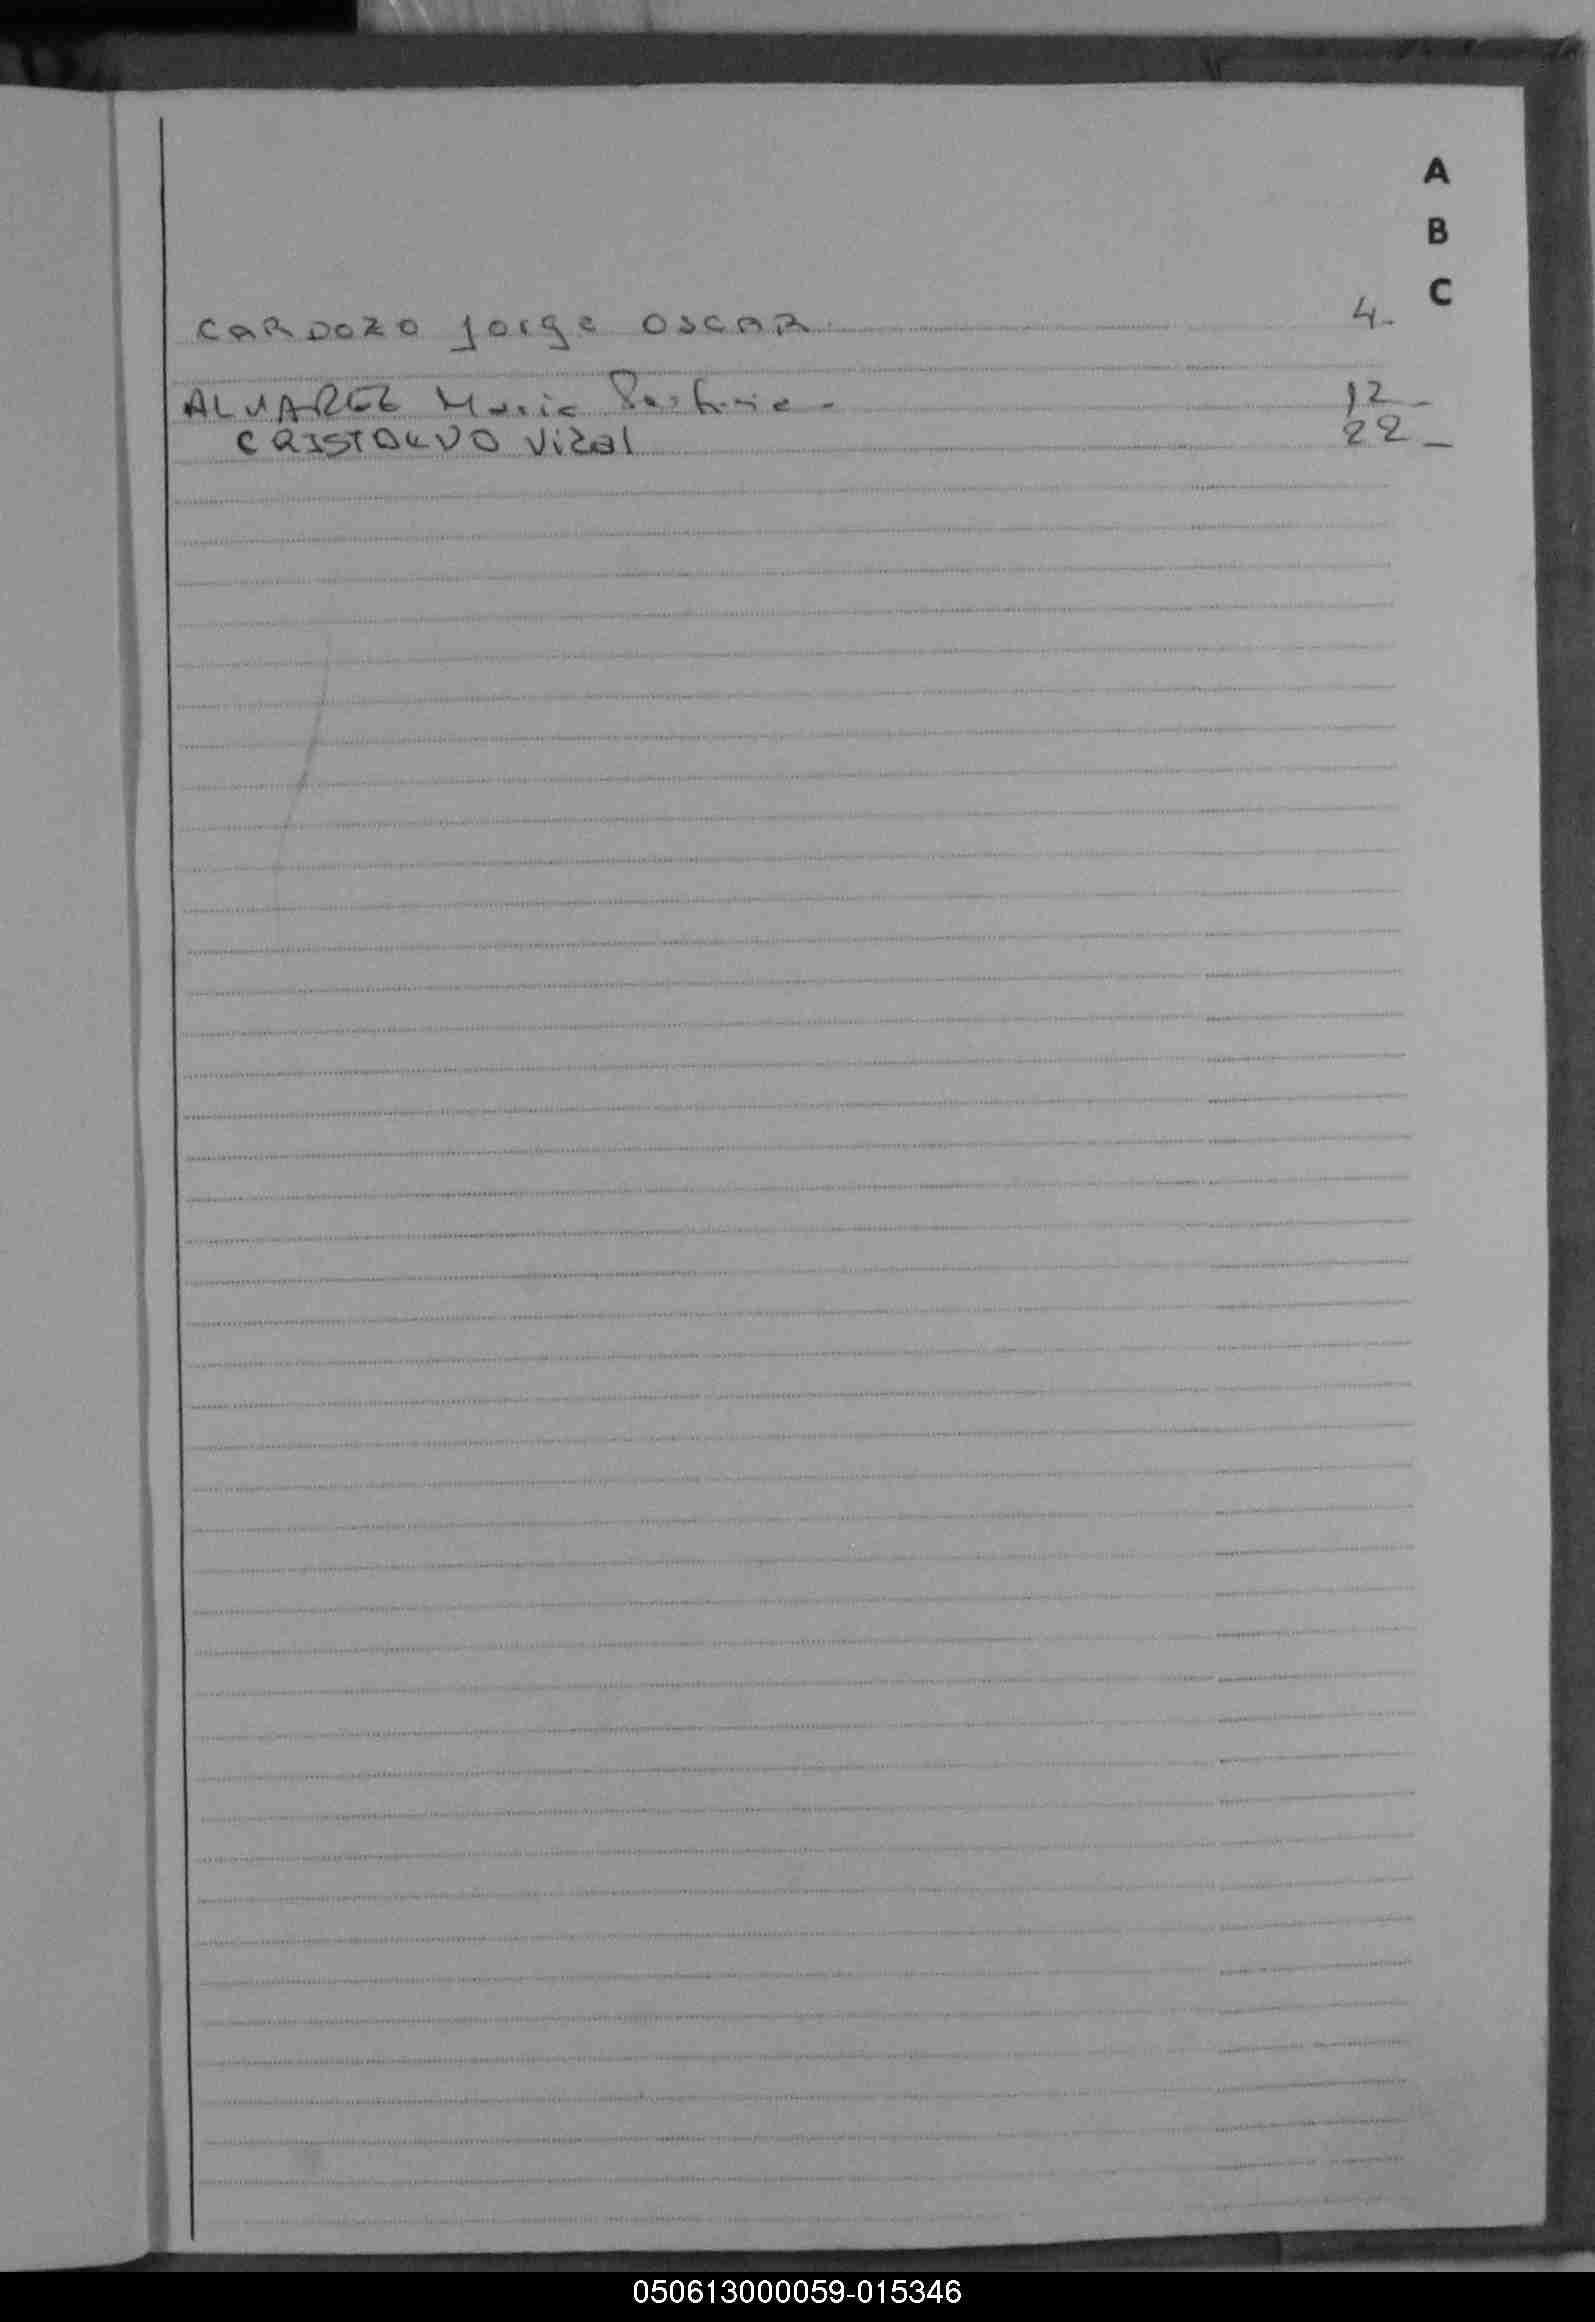 A
B
C
CARDOZO Jorge OSCAR 4.
ALVAREZ Maria 12_
Vital 22_
050613000059-015346